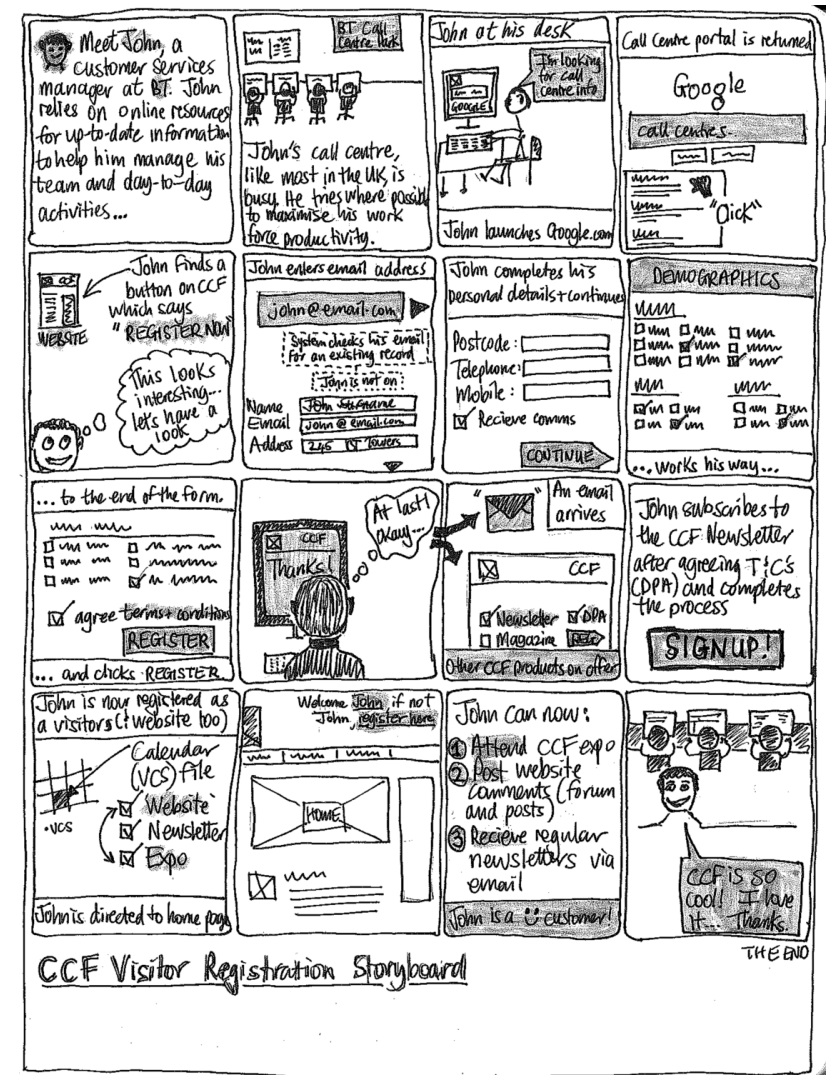 Meet John, a
customer services
manager at BT. John
relies on online resources
for up-to-date information
to help him manage his
team and day-to-day
activities...
BT Call
Centre Park
John's call centre,
like most in the UK, is
busy. He tries where possible
to maximise his work
force productivity.
John at his desk
I'm looking
for call
centre info
GOOGLE
John launches Google.com
Call Centre portal is returned
Google
call centres..
"Click"
John finds a
button on CCF
which says
"REGISTER NOW"
WEBSITE
This looks
interesting...
lets have a
look
John enters email address
john@email.com
System checks his email
for an existing record
John is not on
Name John Surname
Email john@email.com
Address 245 BT Towers
John completes his
personal details + continues
Postcode:
Telephone:
Mobile:
Recieve comms
CONTINUE
DEMOGRAPHICS
...works his way...
...to the end of the form.
agree terms + conditions
REGISTER
... and clicks REGISTER
CCF
Thanks!
At last!
Okay...
An email
arrives
CCF
Newsletter DPA
Magazine REG
Other CCF products on offer
John subscribes to
the CCF Newsletter
after agreeing T&C's
(DPA) and completes
the process
SIGNUP!
John is now registered as
a visitors (& website too)
Calendar
(VCS) file
.VCS
Website
Newsletter
Expo
John is directed to home page
Welcome John if not
John, register here
HOME
John can now:
1 Attend CCF expo
2 Post website
comments (forum
and posts)
3 Recieve regular
newsletters via
email
John is a customer!
CCF is so
cool! I love
it... Thanks.
THE END
CCF Visitor Registration Storyboard